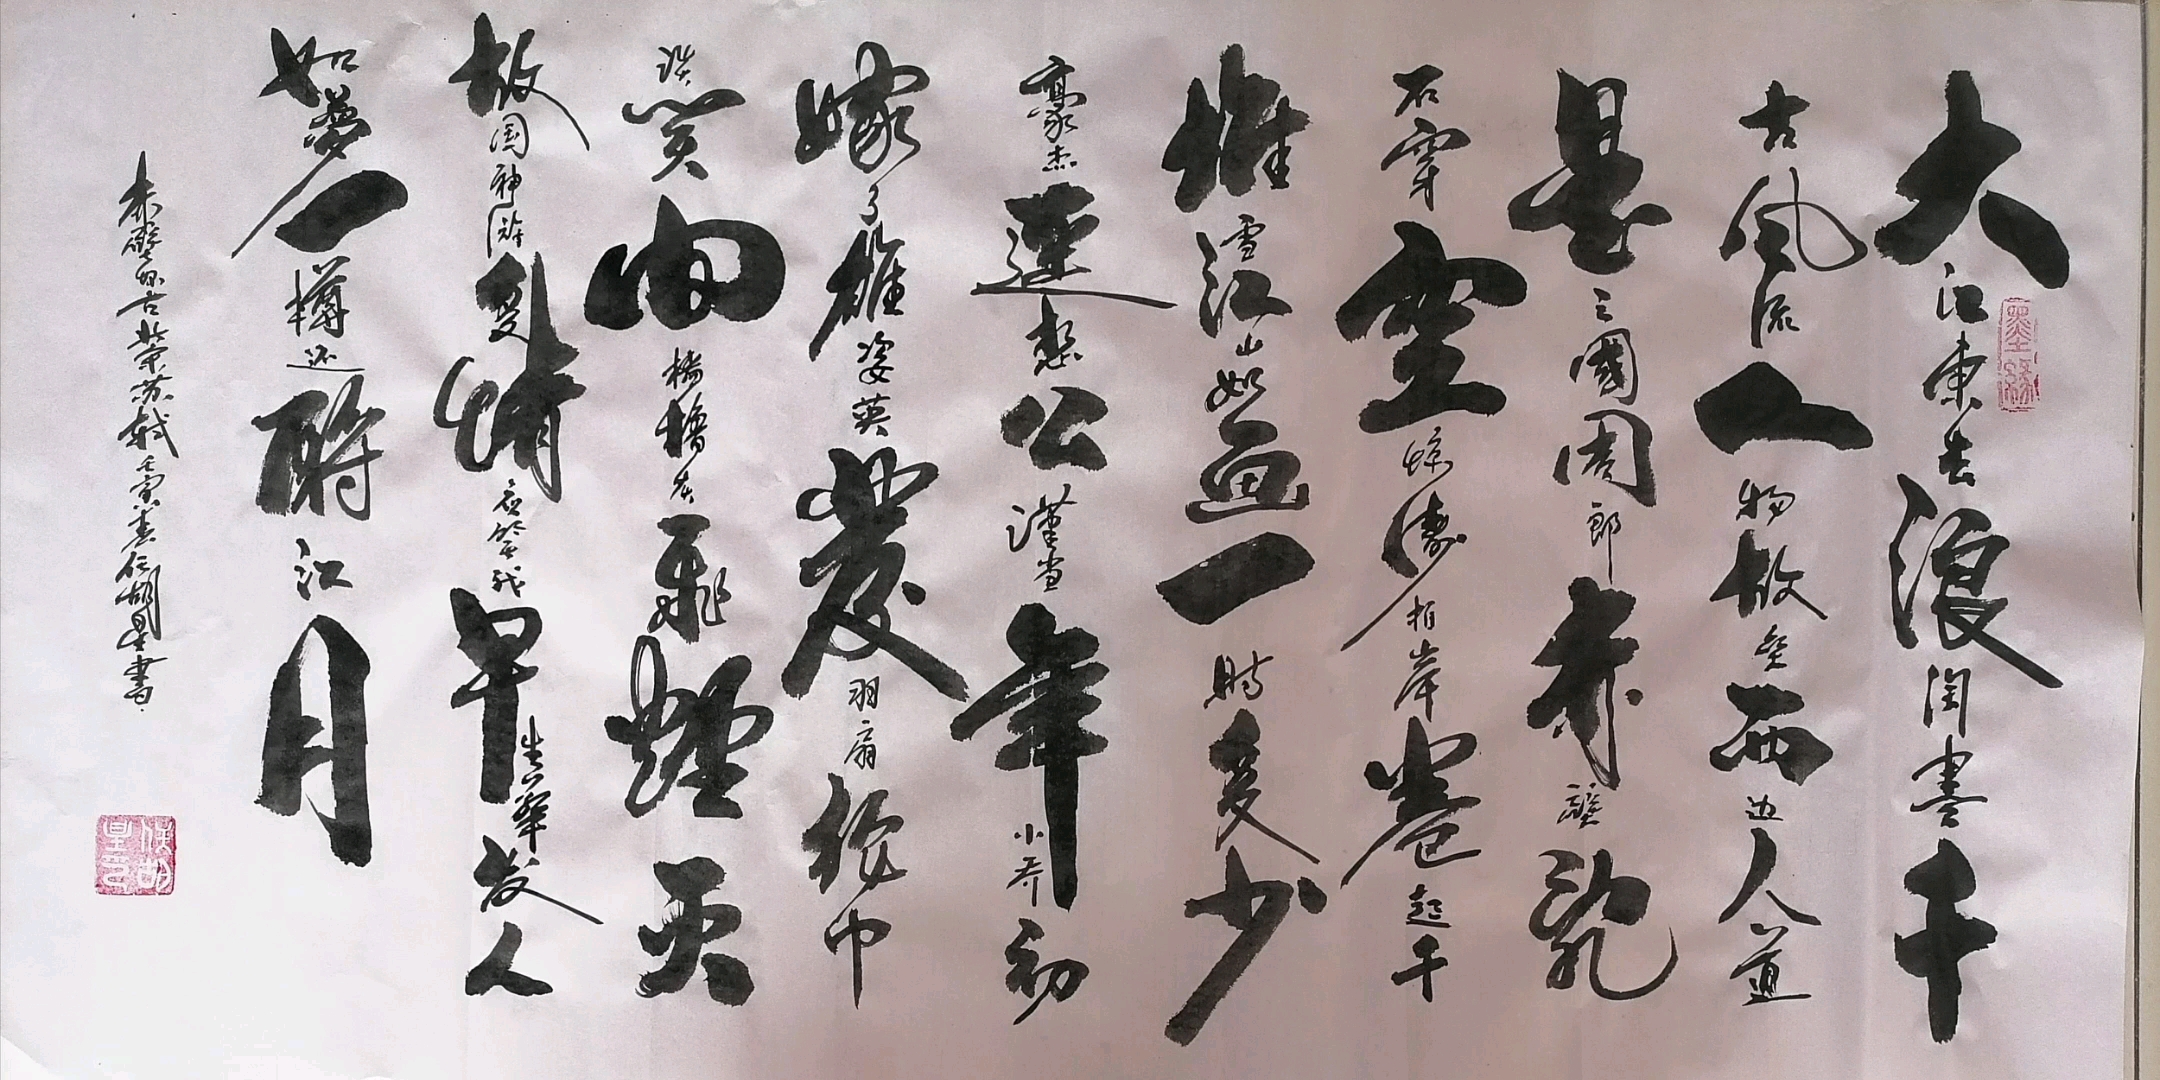 大江東去浪淘盡千
古風流人物故壘西边人道
是三國周郎赤壁乱
石穿空惊濤拍岸卷起千
堆雪江山如画一時多少
豪杰遥想公瑾当年小乔初
嫁了雄姿英發羽扇纶巾
談笑间樯櫓灰飛煙灭
故国神游多情应笑我早生华发人
如夢一樽还酹江月
赤壁怀古 苏轼 壬寅春 任胡星書
墨缘
任胡星印